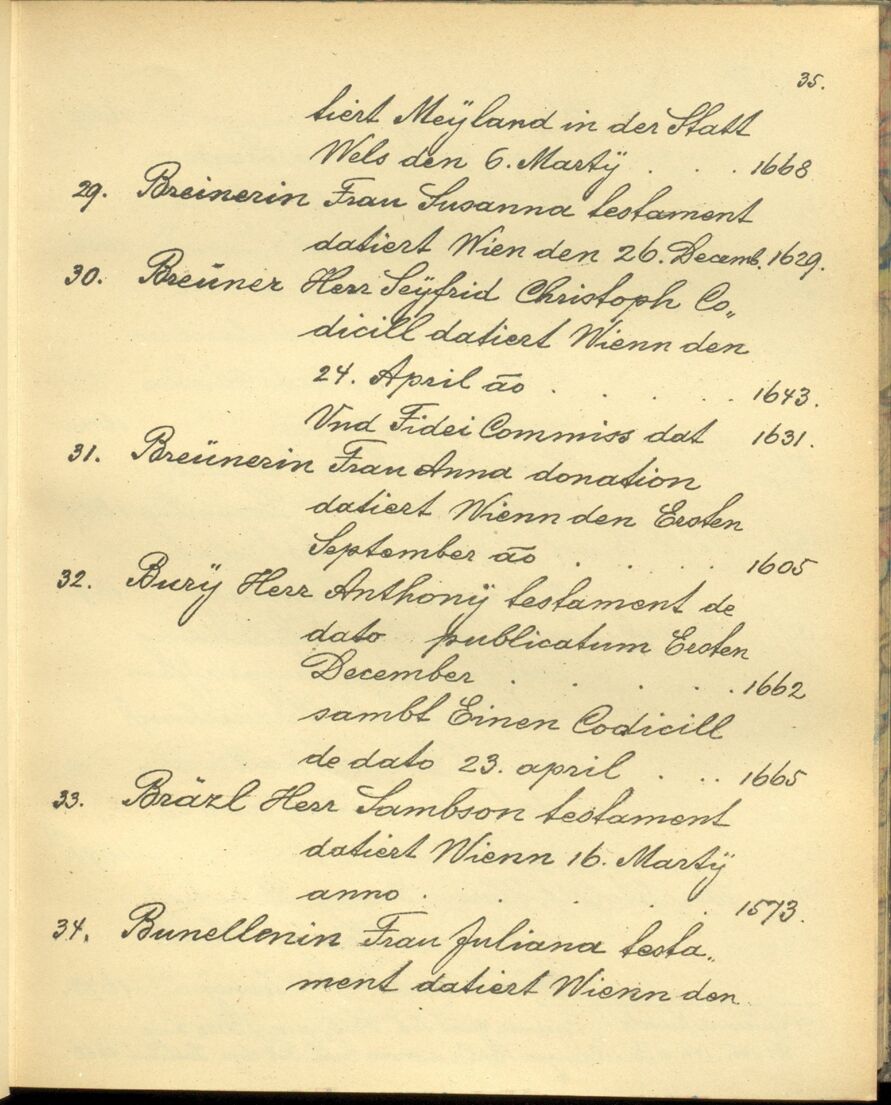 35.
tiert Meÿland in der Statt
Wels den 6. Martÿ . . . 1668
29. Breinerin Frau Susanna testament
datiert Wien den 26. Decemb. 1629.
30. Breüner Herr Seÿfrid Christoph Co„
dicill datiert Wienn den
24. April ão . . . . . 1643.
Vnd Fidei Commiss dat 1631.
31. Breünerin Frau Anna donation
datiert Wienn den Ersten
September ão . . . . . 1605
32. Burÿ Herr Anthonÿ testament de
dato publicatum Ersten
December . . . . . . 1662
sambt Einen Codicill
de dato 23. april . . . 1665
33. Bräzl Herr Sambson testament
datiert Wienn 16. Martÿ
anno . . . . . . 1573.
34. Bunellenin Frau Juliana testa„
ment datiert Wienn den